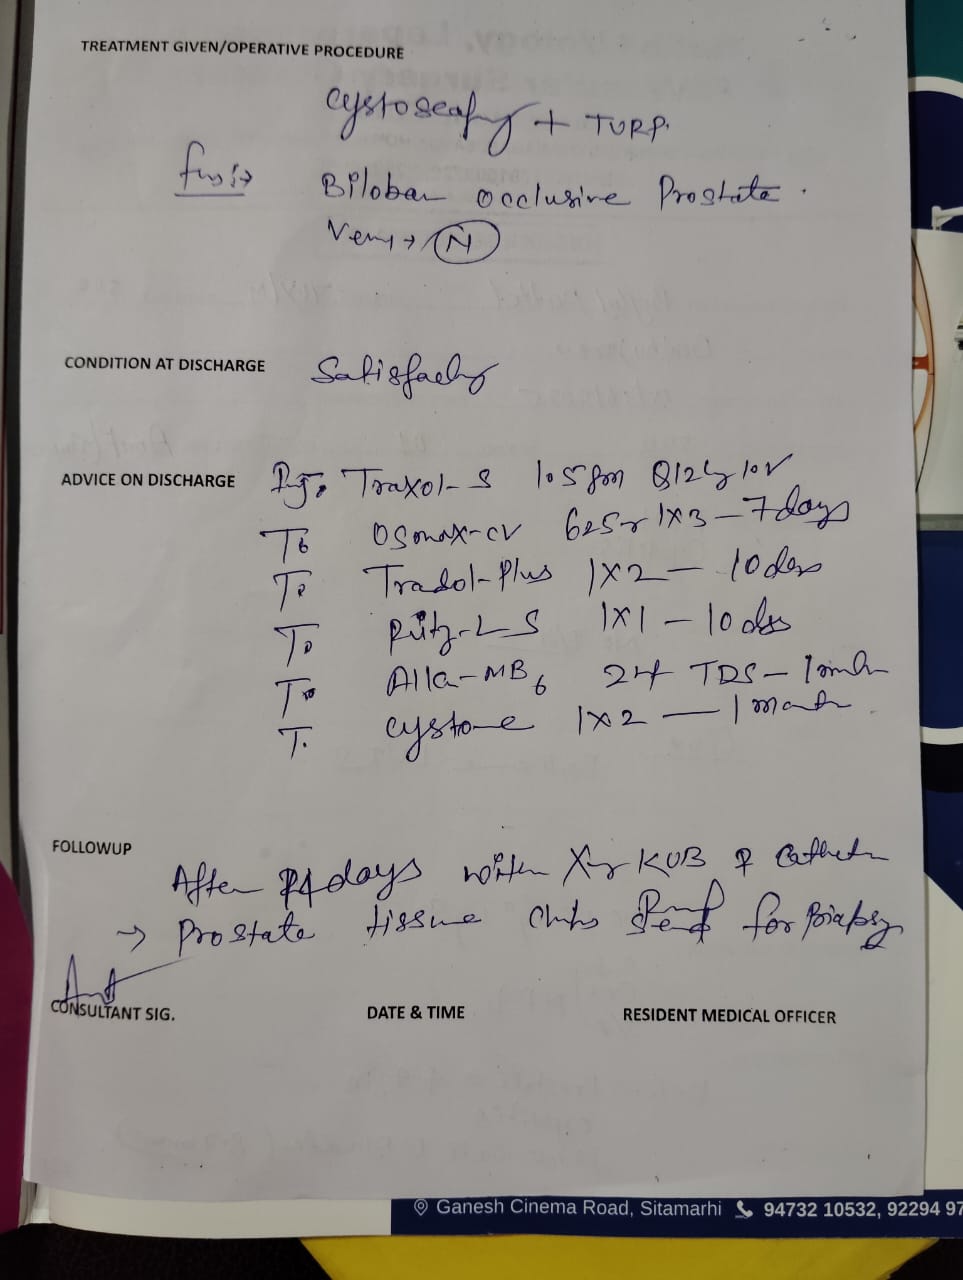 TREATMENT GIVEN/OPERATIVE PROCEDURE
Cystoscopy + TURP.
Bilobar occlusive Prostate.
Veru → N
CONDITION AT DISCHARGE Satisfactory
ADVICE ON DISCHARGE Inj. Traxol-S 1.5gm Q12hly IV
T. Osmox-CV 625 1x3 – 7 days
T. Tradol-Plus 1x2 – 10 days
T. L S 1x1 – 10 days
T. Alka-MB6 TDS – 1 month
T. Cystone 1x2 — 1 month
FOLLOWUP
After days with KUB Catheter
→ Prostate tissue send for Biopsy
CONSULTANT SIG. DATE & TIME RESIDENT MEDICAL OFFICER
Ganesh Cinema Road, Sitamarhi 94732 10532, 92294 97